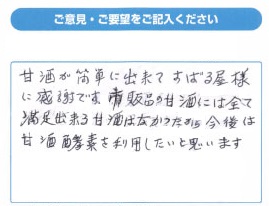 ご意見・ご要望をご記入ください
甘酒が簡単に出来てすばる屋様
に感謝です。市販品の甘酒には全て
満足出来る甘酒はなかったから今後は
甘酒酵素を利用したいと思います